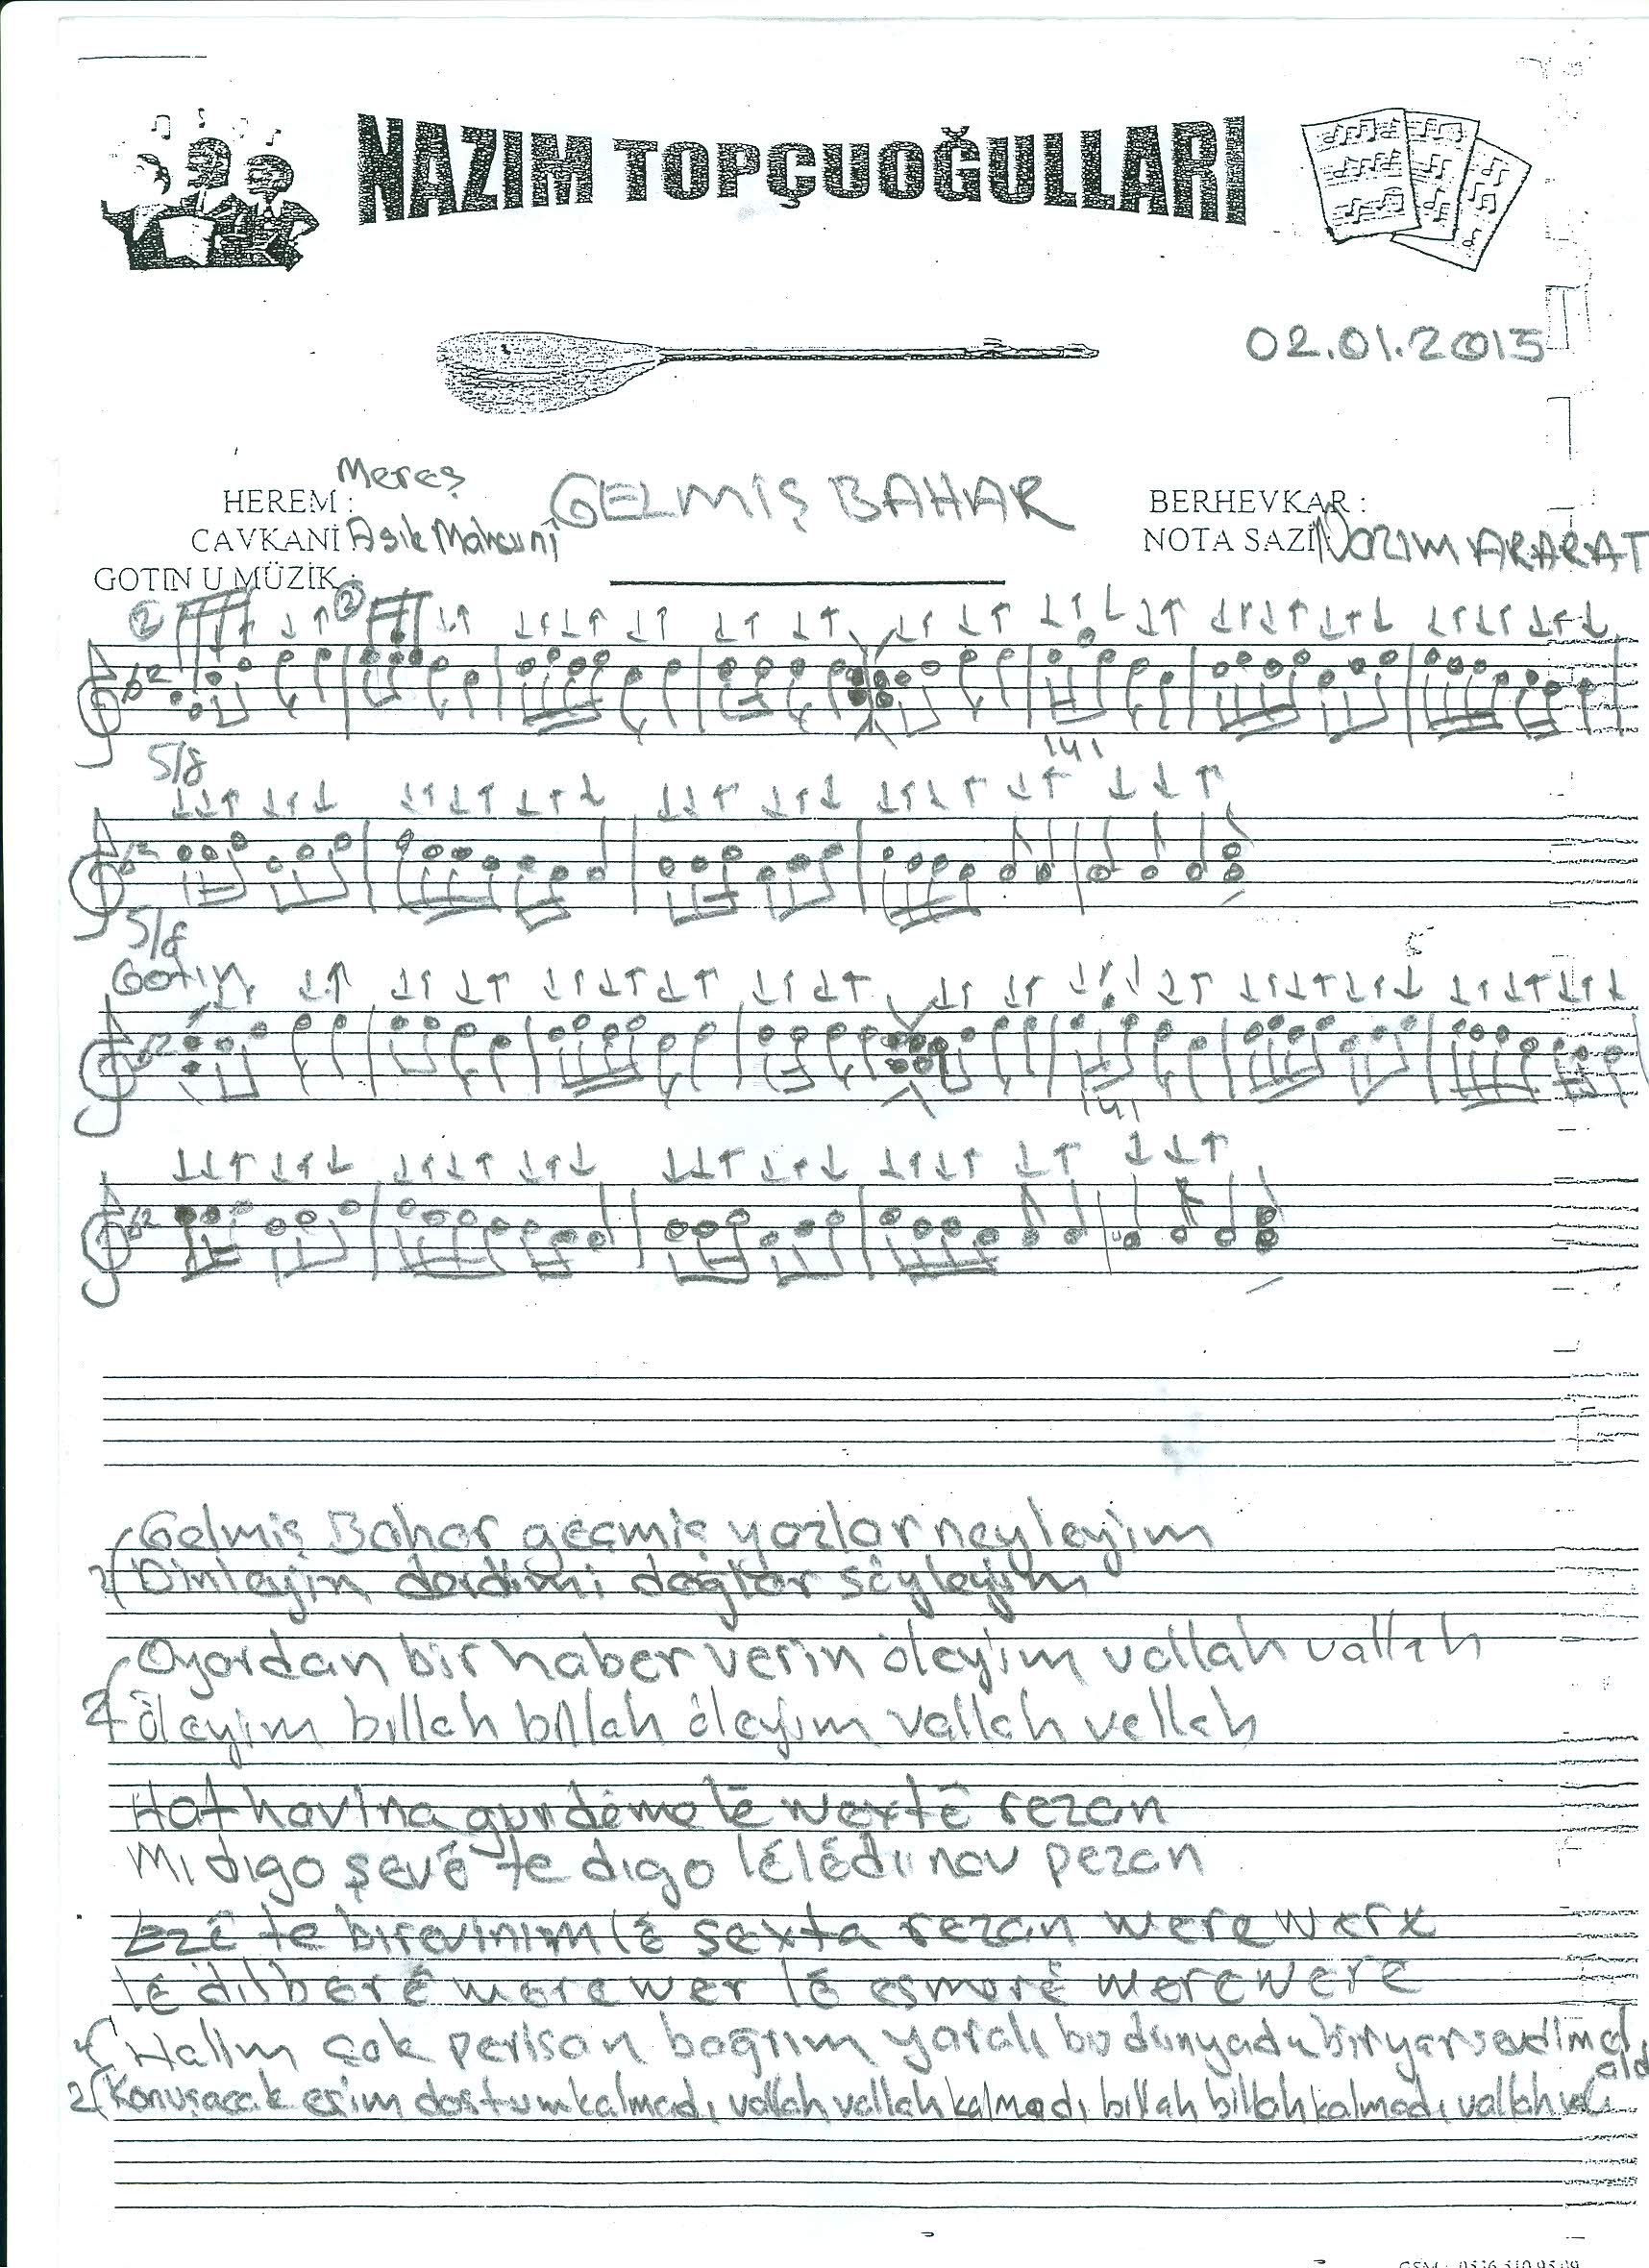 NAZIM TOPÇUOĞULLARI
02.01.2015
HEREM : Mereş
GELMİŞ BAHAR
BERHEVKAR :
CAVKANİ Aşık Mahsunî
NOTA SAZİ : Nazım ARARAT
GOTIN U MÜZİK :
2 2
5/8
5/8
Gotın
Gelmiş Bahar geçmiş yazlar neyleyim
2 Dinleyin derdimi dağlar söyleyim
O yardan bir haber verin öleyim vallah vallah
2 öleyim billah billah öleyim vallah vellah
Hat havina gundême lê wextê rezan
Mi digo şevê te digo lêlê di nav pezan
Ezê te birevinim lê sexta rezan were were
lê dilberê were wer lê esmerê were were
Halim çok perişan bağrım yaralı bu dünyada bir yar sevdim el
aldı
2 Konuşacak eşim dostum kalmadı vallah vallah kalmadı billah billah kalmadı vallah
GSM : 0536 510 95 09